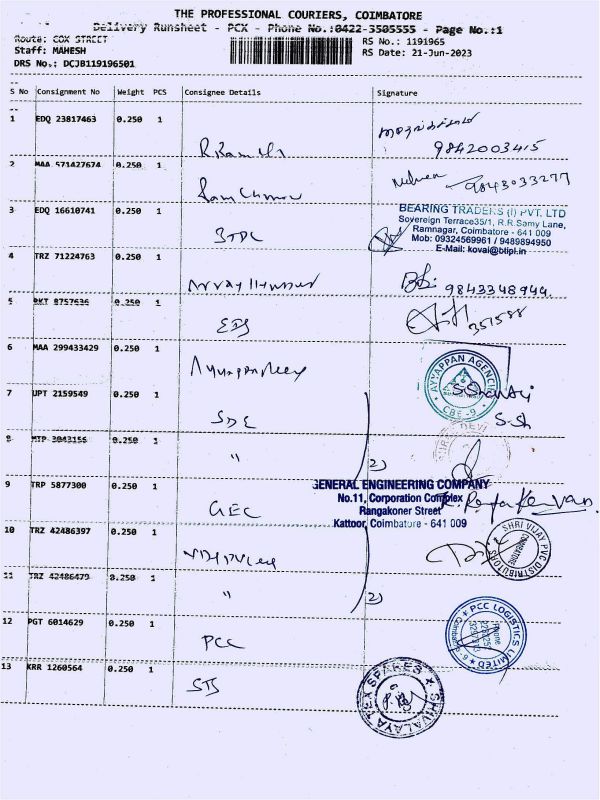 THE PROFESSIONAL COURIERS, COIMBATORE
Delivery Runsheet - PCX - Phone No.:0422-3505555 - Page No.:1
Route: COX STREET
Staff: MAHESH
DRS No.: DCJB119196501
RS No.: 1191965
RS Date: 21-Jun-2023
S No Consignment No Weight PCS Consignee Details Signature
1 EDQ 23817463 0.250 1
9842003415
2 MAA 571427674 0.250 1
9843033277
3 EDQ 16610741 0.250 1
BEARING TRADERS (I) PVT. LTD
Sovereign Terrace35/1, R.R.Samy Lane,
Ramnagar, Coimbatore - 641 009
Mob: 09324569961 / 9489894950
E-Mail: kovai@btipl.in
4 TRZ 71224763 0.250 1
9843348944
5 BKT 8757636 0.250 1
351588
6 MAA 299433429 0.250 1
AYYAPPAN AGENCIES
CBE-9
7 UPT 2159549 0.250 1
SDE
S.Sh
8 MTP 3043156 0.250 1
"
2)
9 TRP 5877300 0.250 1
GEC
GENERAL ENGINEERING COMPANY
No.11, Corporation Complex
Rangakoner Street
Kattoor, Coimbatore - 641 009
10 TRZ 42486397 0.250 1
SHRI VIJAY PVC DISTRIBUTORS
COIMBATORE
11 TRZ 42486479 0.250 1
"
2)
12 PGT 6014629 0.250 1
PCC
PCC LOGISTICS LIMITED
Phone
13 KRR 1260564 0.250 1
STS
SHIVALAYA TEX SPARES